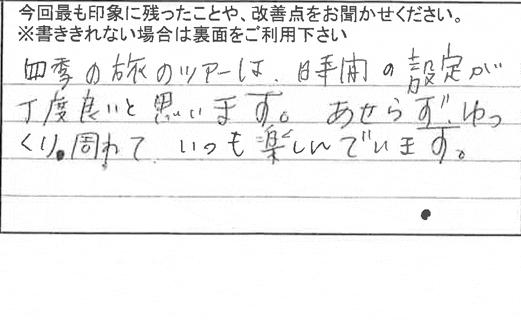 今回最も印象に残ったことや、改善点をお聞かせください。
※書ききれない場合は裏面をご利用下さい
四季の旅のツアーは、時間の設定が
丁度良いと思います。あせらず、ゆっ
くり周れて、いつも楽しんでいます。